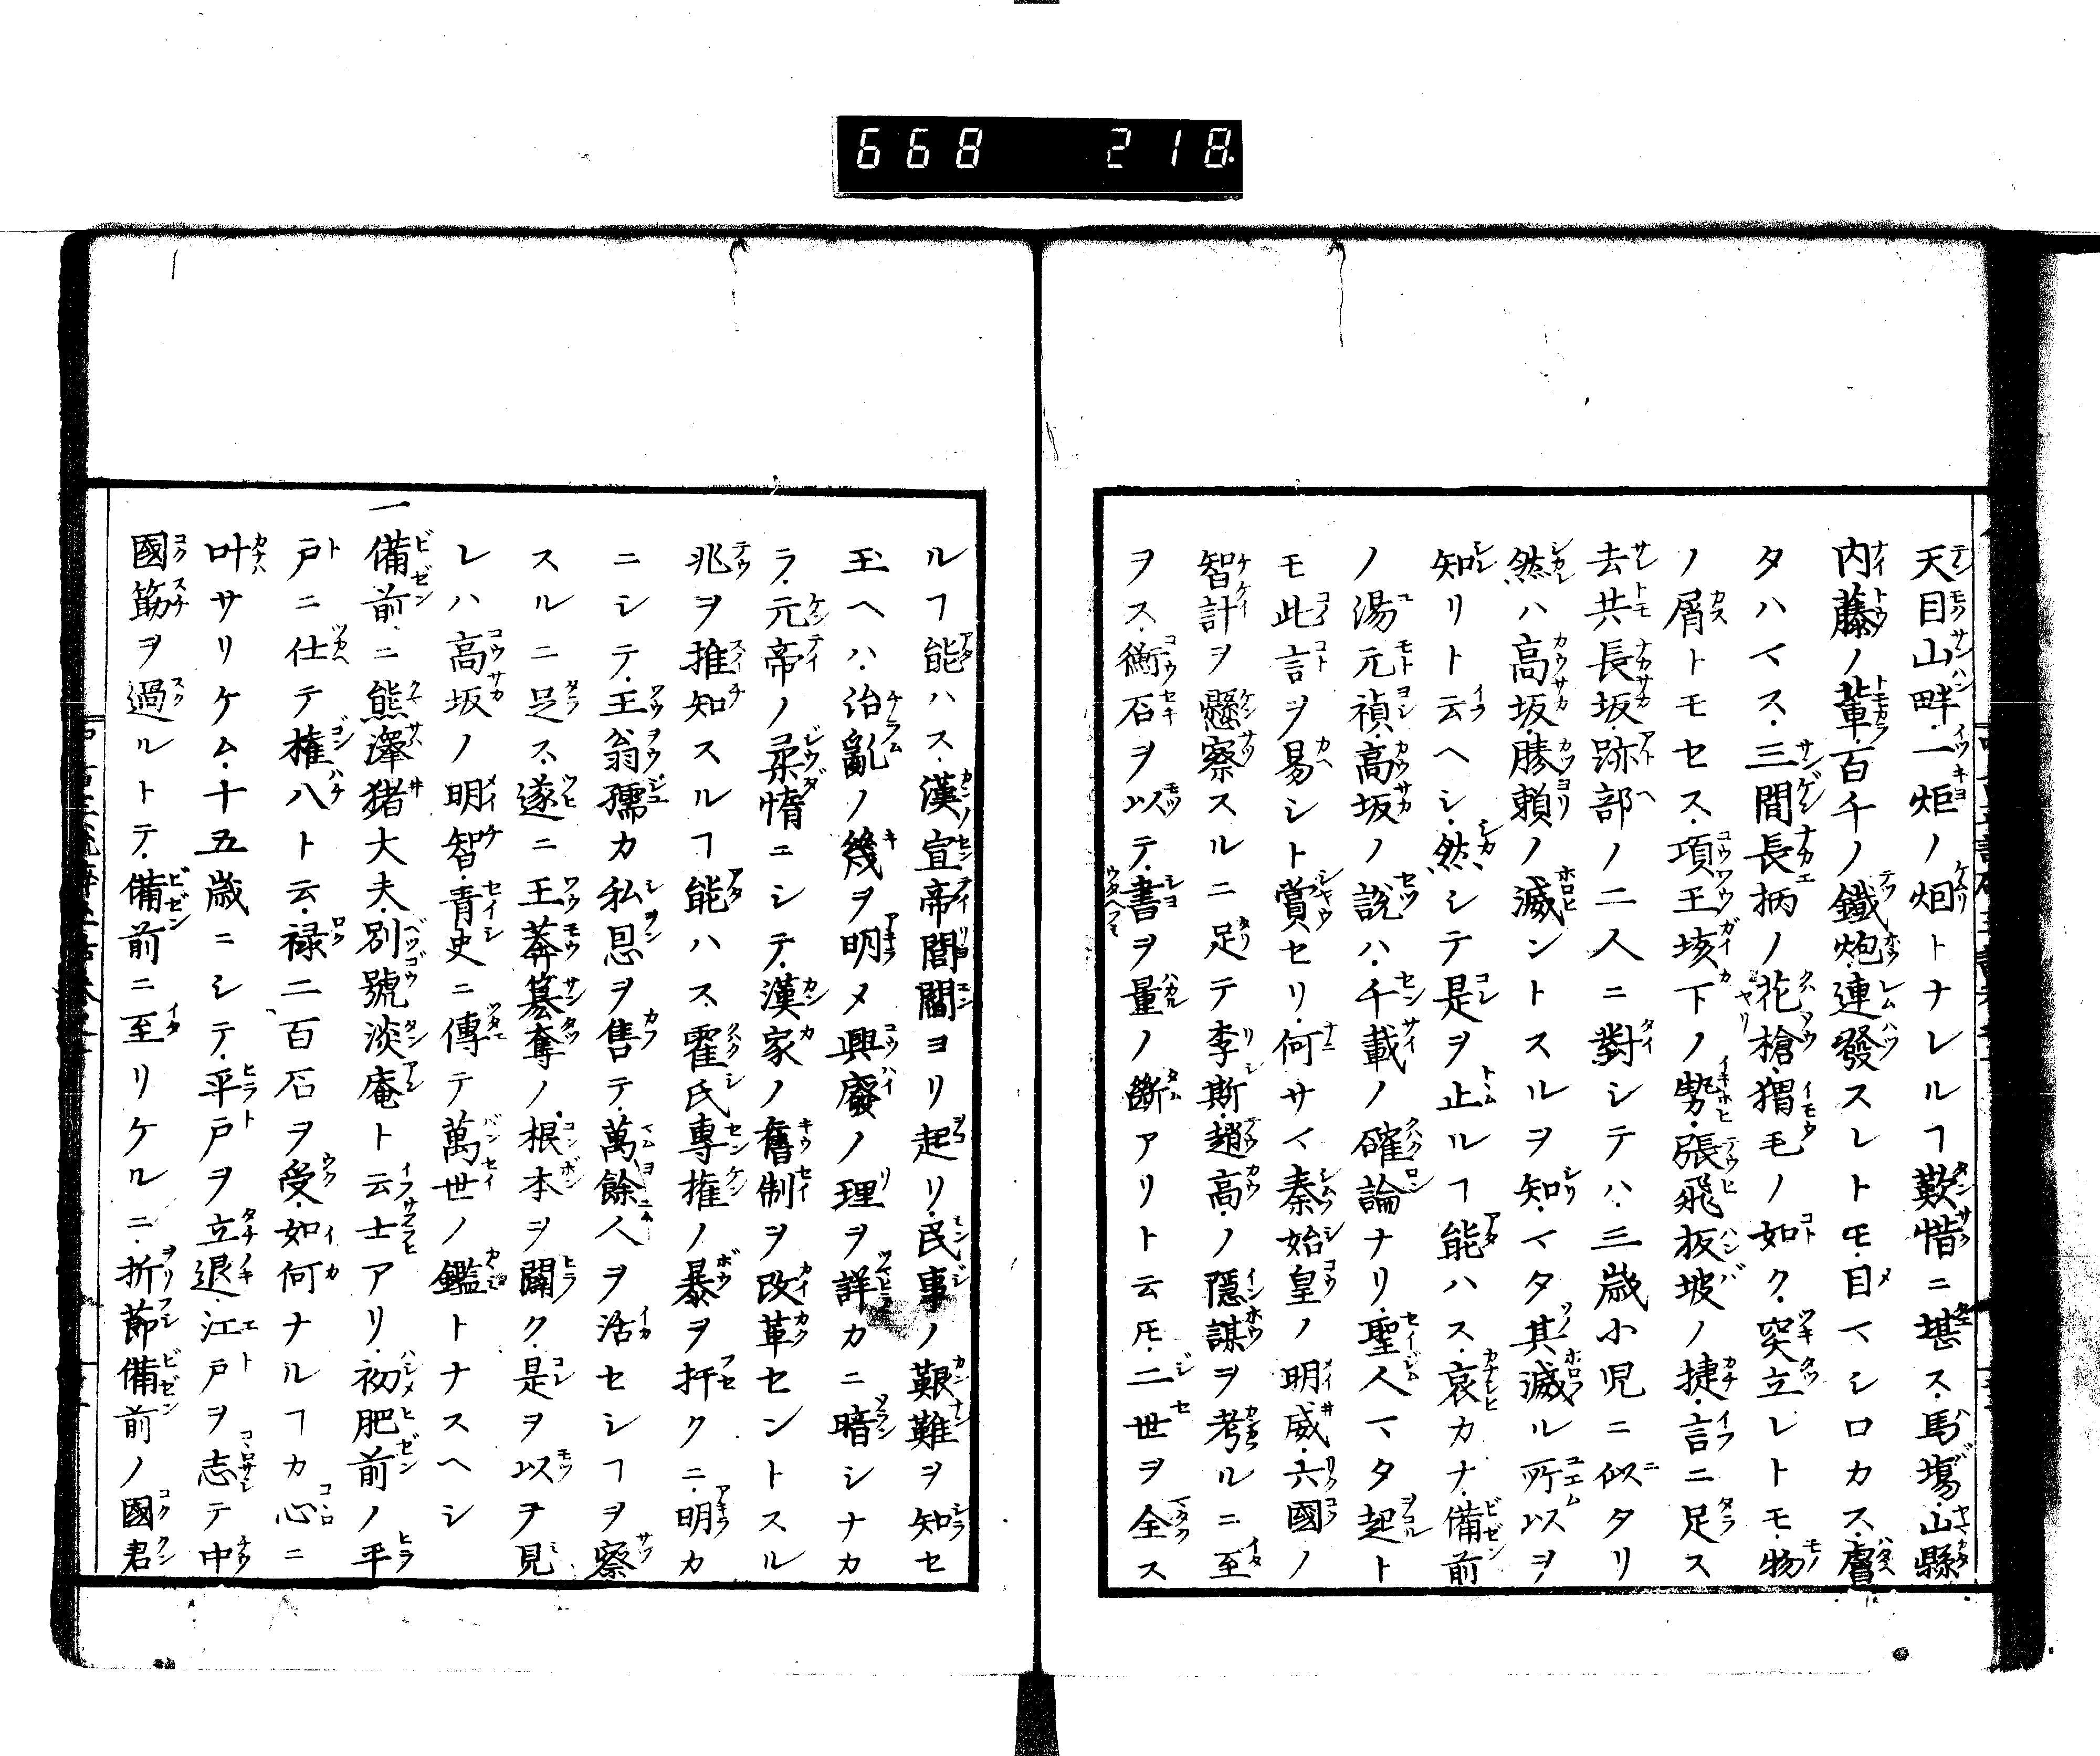 668 218
天目山畔一炬ノ烟トナレルヿ歎惜ニ堪ス馬塲山縣
内藤ノ輩百千ノ鐵炮連發スレトモ目マシロカス膚
タハマス三間長柄ノ花槍猬毛ノ如ク突立レトモ物
ノ屑トモセス項王垓下ノ勢張飛坂坡ノ捷言ニ足ス
去共長坂跡部ノ二人ニ對シテハ三歳小児ニ似タリ
然ハ高坂勝頼ノ滅ントスルヲ知マタ其滅ル所以ヲ
知リト云ヘシ然シテ是ヲ止ルヿ能ハス哀カナ備前
ノ湯元禎高坂ノ説ハ千載ノ確論ナリ聖人マタ起ト
モ此言ヲ易シト賞セリ何サマ秦始皇ノ明威六國ノ
智計ヲ懸察スルニ足テ李斯趙高ノ隠謀ヲ考ルニ至
ヲス衡石ヲ以テ書ヲ量ノ断アリト云𪜈二世ヲ全ス
ルヿ能ハス漢宣帝閭閻ヨリ起リ民事ノ艱難ヲ知セ
玉ヘハ治亂ノ幾ヲ明メ興廢ノ理ヲ詳カニ暗シナカ
ラ元帝ノ柔惰ニシテ漢家ノ舊制ヲ改革セントスル
兆ヲ推知スルヿ能ハス霍氏專権ノ暴ヲ扞クニ明カ
ニシテ王翁孺カ私恩ヲ售テ萬餘人ヲ活セシヿヲ察
スルニ足ス遂ニ王莽簒奪ノ根本ヲ闢ク是ヲ以テ見
レハ高坂ノ明智青史ニ傳テ萬世ノ鑑トナスヘシ
一備前ニ熊澤猪大夫別號淡庵ト云士アリ初肥前ノ平
戸ニ仕テ権八ト云禄二百石ヲ受如何ナルヿカ心ニ
叶サリケム十五歳ニシテ平戸ヲ立退江戸ヲ志テ中
國筋ヲ過ルトテ備前ニ至リケルニ折節備前ノ國君